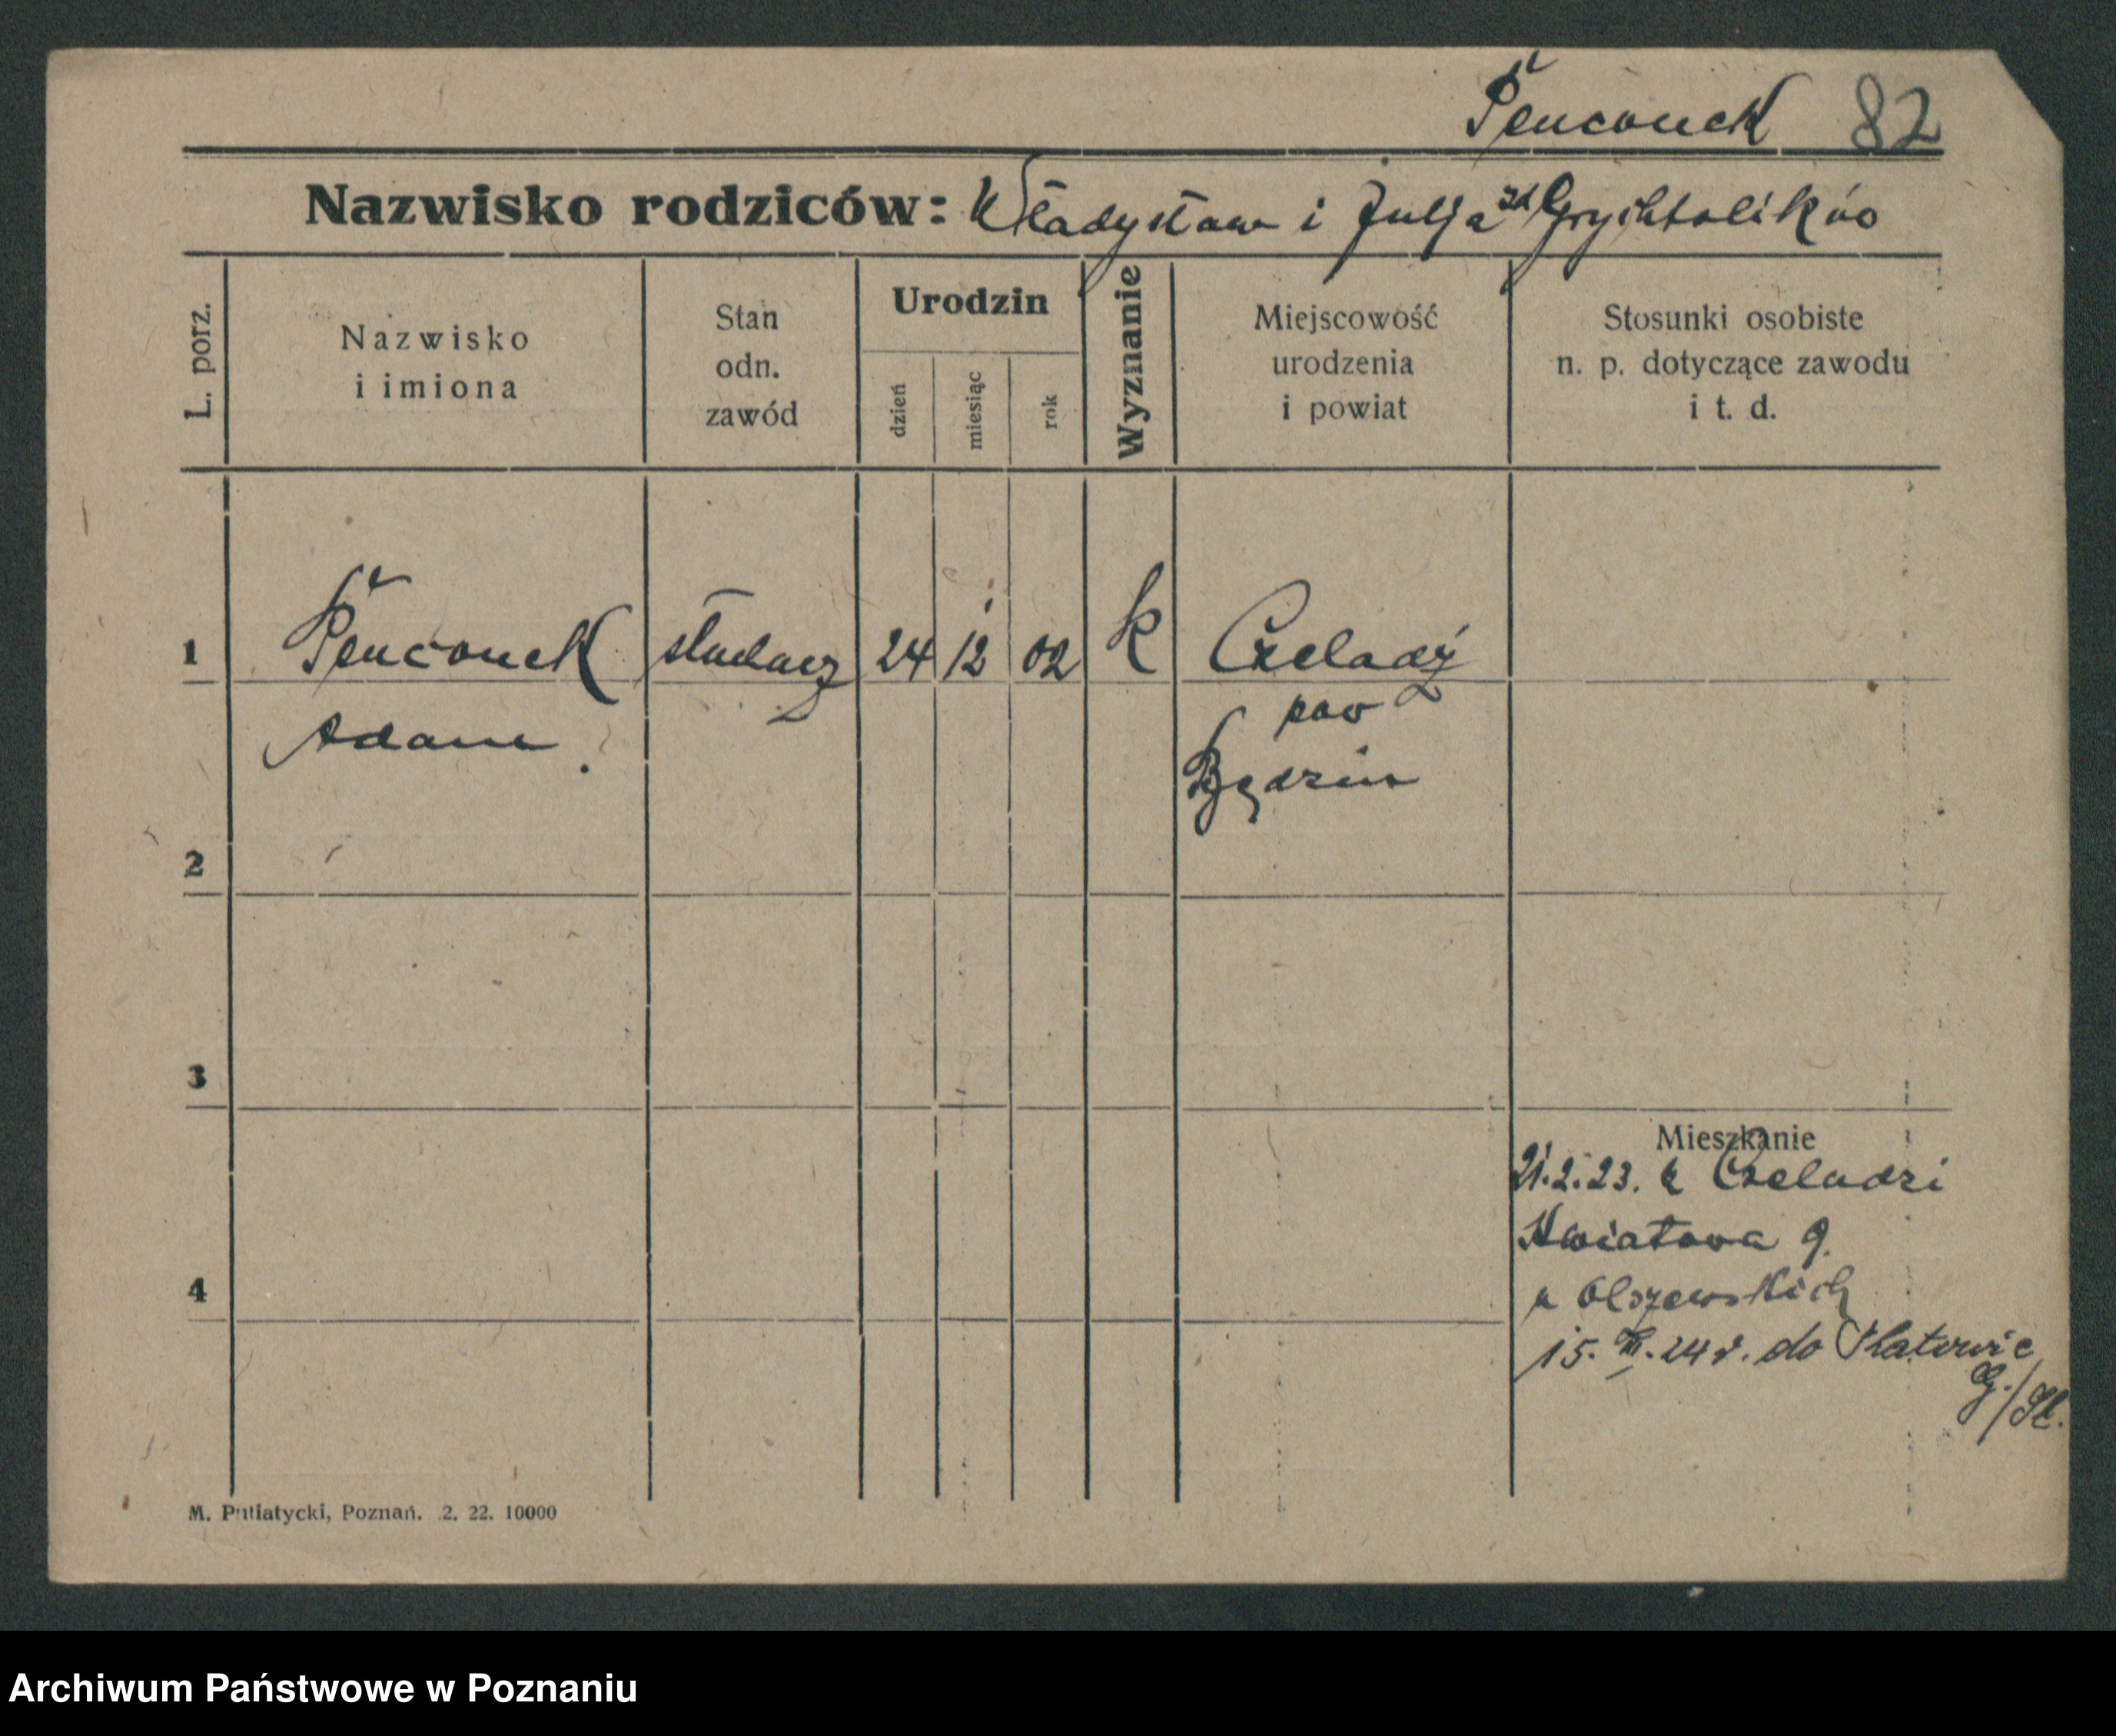 Penconek 82
Nazwisko rodziców: Władysław i Julja zd Grychtolików
L. porz.
Nazwisko
i imiona
Stan
odn.
zawód
Urodzin
dzień
miesiąc
rok
Wyznanie
Miejscowość
urodzenia
i powiat
Stosunki osobiste
n. p. dotyczące zawodu
i t. d.
1 Penconek 24 12 02 k Czeladź
Adam
pow
Będzin
2
3
Mieszkanie
21.2.23. z Czeladzi
Kwiatowa 9.
4
u Olszewskich
15. 24 r. do Katowic
G./Śl.
M. Putiatycki, Poznań. 2. 22. 10000
Archiwum Państwowe w Poznaniu